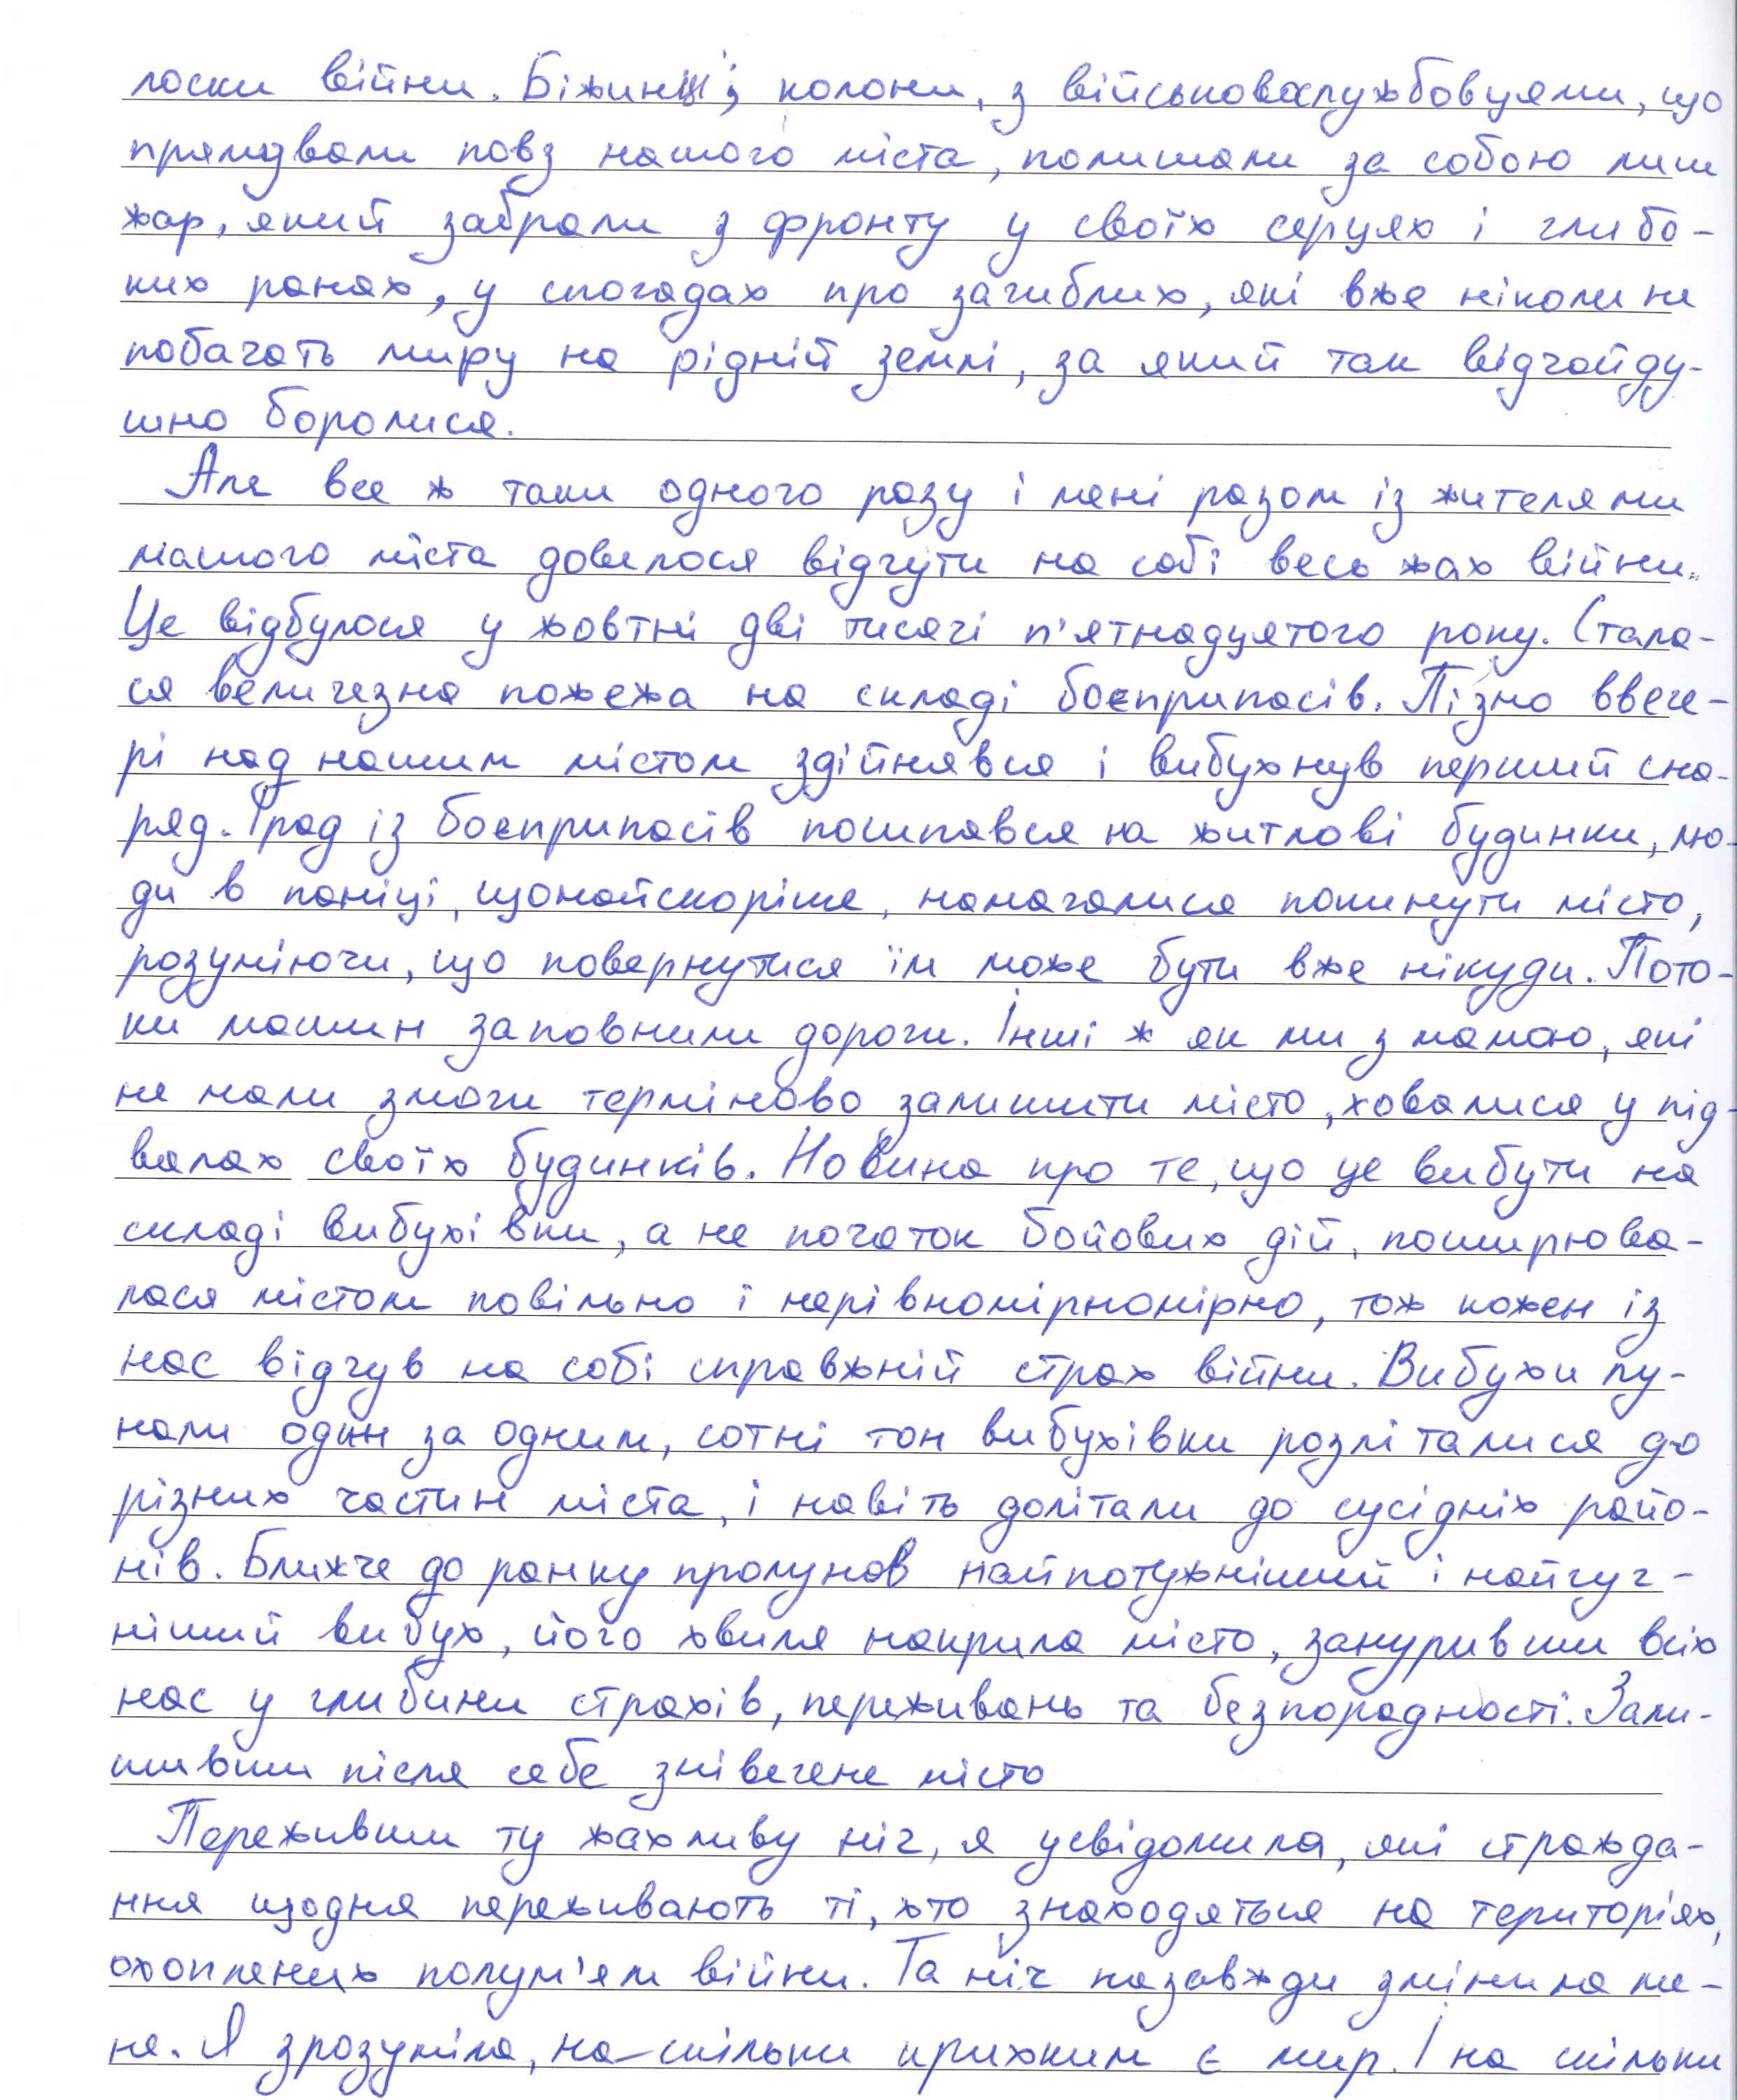 лоски війни. Біжинці, колони, з військовослужбовцями, що
прямували повз нашого міста, полишали за собою лиш
жар, який забрали з фронту у своїх серцях і глибо-
ких ранах, у спогадах про загиблих, які вже ніколи не
побачать миру на рідній землі, за який так відчайду-
шно боролися.
Але все ж таки одного разу і мені разом із жителями
нашого міста довелося відчути на собі весь жах війни.
Це відбулося у жовтні дві тисячі п'ятнадцятого року. Стала-
ся величезна пожежа на складі боєприпасів. Пізно ввече-
рі над нашим містом здійнявся і вибухнув перший сна-
ряд. Град із боєприпасів посипався на житлові будинки, лю-
ди в паніці, щонайскоріше, намагалися покинути місто,
розуміючи, що повернутися їм може бути вже нікуди. Пото-
ки машин заповнили дороги. Інші ж як ми з мамою, які
не мали змоги терміново залишити місто, ховалися у під-
валах своїх будинків. Новина про те, що це вибути на
складі вибухівки, а не початок бойових дій, поширюва-
лася містом повільно і нерівномірномірно, тож кожен із
нас відчув на собі справжній страх війни. Вибухи лу-
нали один за одним, сотні тон вибухівки розліталися до
різних частин міста, і навіть долітали до сусідніх райо-
нів. Ближче до ранку пролунав найпотужніший і найгуч-
ніший вибух, його хвиля накрила місто, зануривши всіх
нас у глибини страхів, переживань та безпорадності. Зали-
шивши після себе знівечене місто
Переживши ту жахливу ніч, я усвідомила, які стражда-
ння щодня переживають ті, хто знаходяться на територіях,
охоплених полум'ям війни. Та ніч назавжди змінила ме-
не. Я зрозуміла, на-скільки крихким є мир. І на скільки